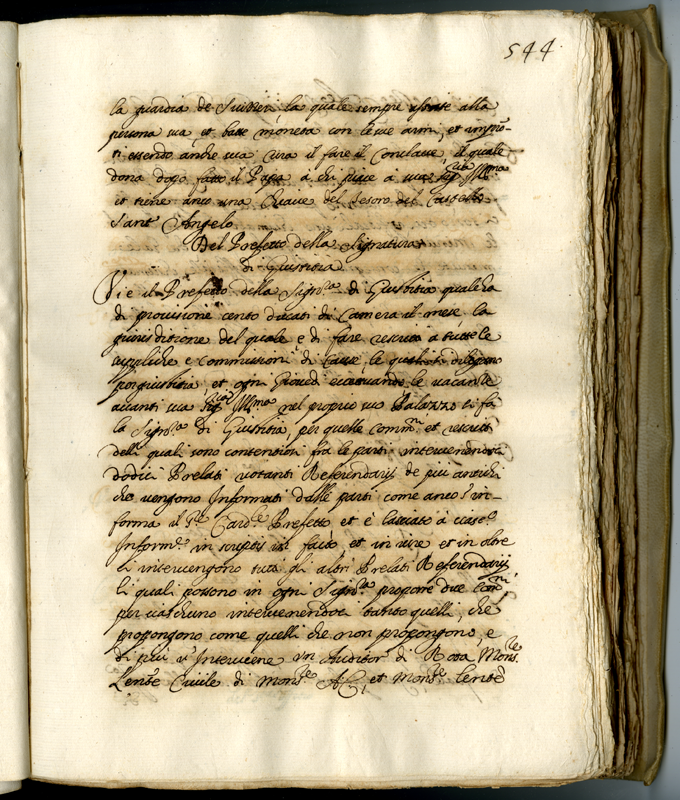 544
la guardia de Suizzeri, la quale sempre assiste alla
persona sua et batte moneta con le sue armi, et impro-
ti essendo anche sua cura il fare il Conclaue, il quale
dona dopo fatto il Papa à chi piace à sua Sig.ria Ill.ma
et tiene anco una Chiaue del Tesoro del Castello
Sant' Angelo
Del Prefetto della Signatura
di Giustitia
Vi è il Prefetto della Sign.ra di Giustitia qual ha
di prouisione cento ducati di Camera il mese, la
giurisditione del quale è di fare rescritti a tutte le
suppliche e commissioni di Cause, le quali si
per giustitia, et ogni Giouedì eccettuando le uacantie
auanti sua Sig.ria Ill.ma nel proprio suo Palazzo si fa
la Sign.ra di Giustitia, per quelle comm.ni et rescritti
delli quali sono contentiosi fra le parti interuenendoui
dodici Prelati uotanti Referendarij de più antichi
che uengono Informati dalle parti come anco s' in-
forma il S.r Card.le Prefetto et è lasciato à ciasc.o
Inform.e in scriptis in facto et in iure et in oltre
li interuengono tutti gli altri Prelati Referendarij
li quali possono in ogni Sign.ra proporre due Com.ni
per ciascheduno interuenendoci tanto quelli, che
propongono come quelli che non propongono, e
di più u' Interuiene un Auditor' di Rota Mons.re
Lente Ciuile di Mons.re AC, et Mons.re Lente